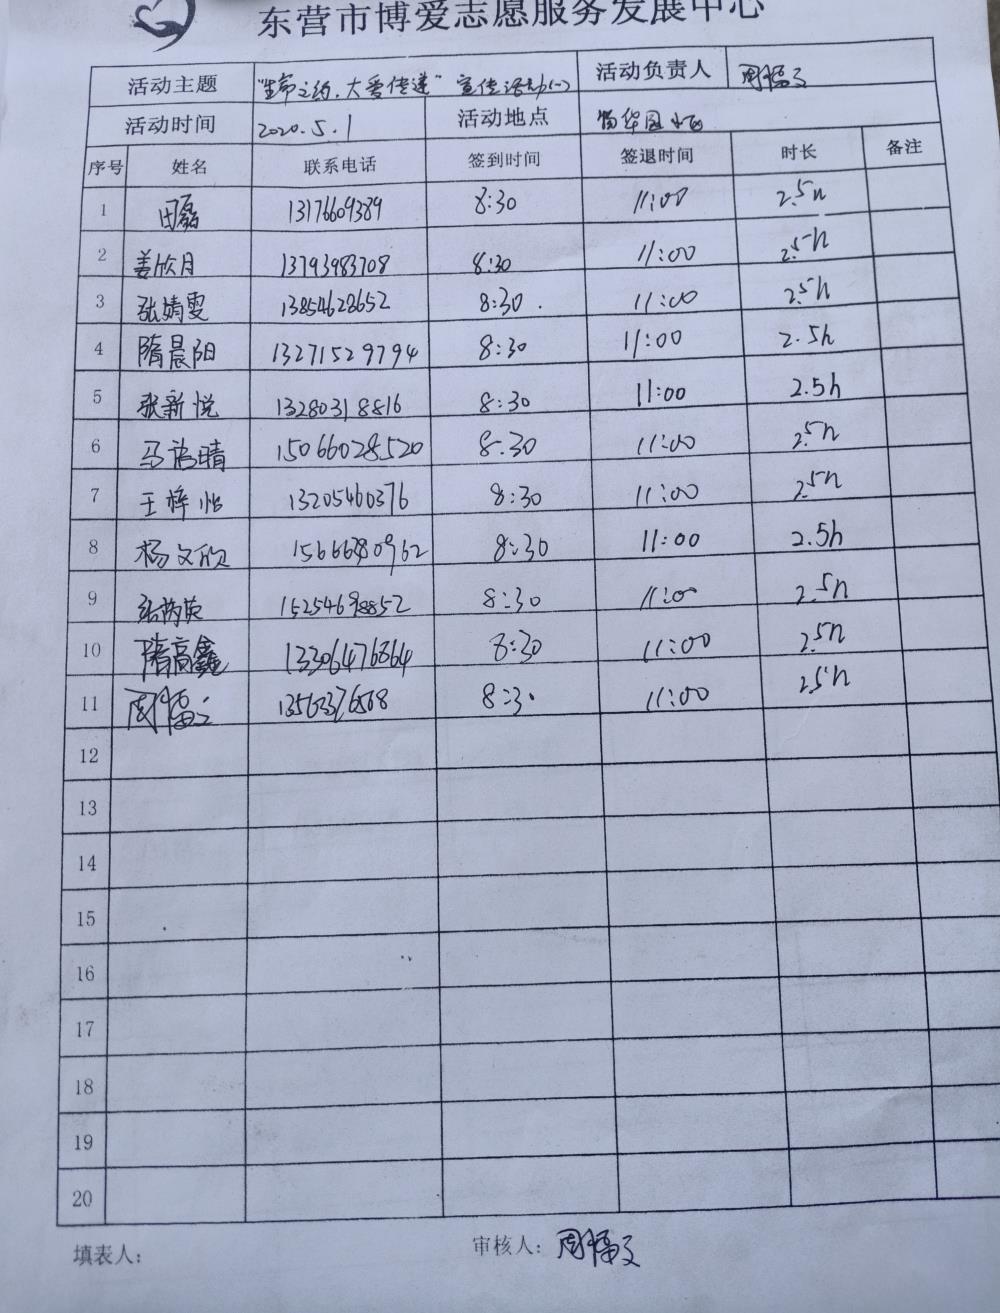 东营市博爱志愿服务发展中心
活动主题 "生命之约,大爱传递"宣传活动(一) 活动负责人 周福文
活动时间 2020.5.1 活动地点
序号 姓名 联系电话 签到时间 签退时间 时长 备注
1 田磊 13176609389 8:30 11:00 2.5h
2 姜欣月 13793983708 8:30 11:00 2.5h
3 张婧雯 13854628652 8:30 11:00 2.5h
4 隋晨阳 13271529794 8:30 11:00 2.5h
5 张新悦 13280318816 8:30 11:00 2.5h
6 15066028520 8:30 11:00 2.5h
7 王梓怡 13205460376 8:30 11:00 2.5h
8 杨文欣 8:30 11:00 2.5h
9 15254698852 8:30 11:00 2.5h
10 隋高鑫 13306476864 8:30 11:00 2.5h
11 周福文 8:30 11:00 2.5h
12
13
14
15
16
17
18
19
20
填表人: 审核人: 周福文